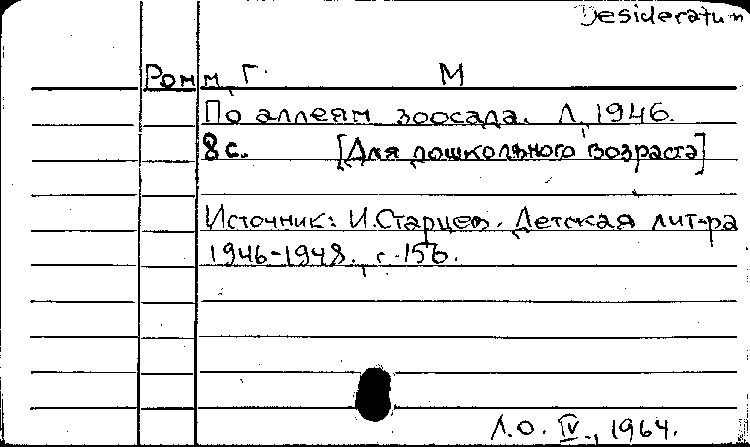 Desideratum
Ромм, Г. М
По аллеям зоосада. Л, 1946.
8с. [Для дошкольного возраста]
Источник: И.Старцев. Детская лит-ра
1946-1948., с. 156.
Л.О. IV., 1964.